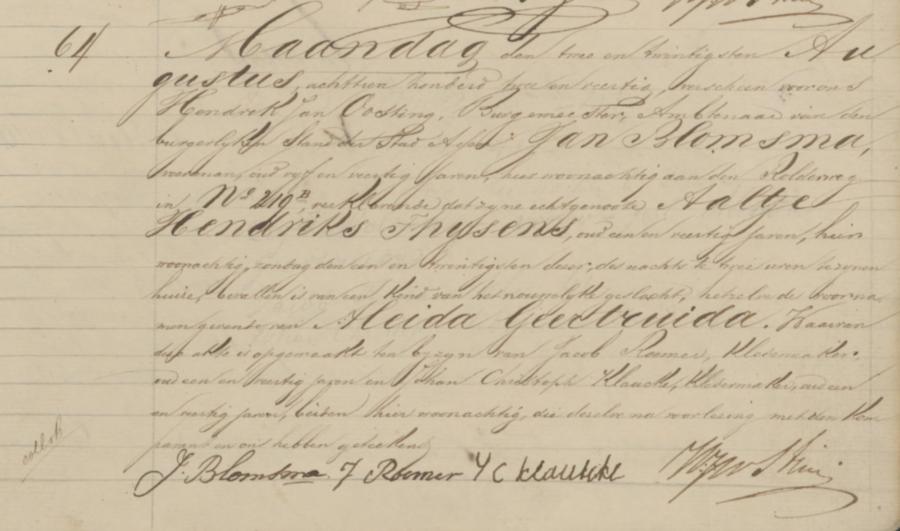 64
Maandag den twee en twintigsten Au
gustus, achttien honderd twee en veertig, verscheen voor ons
Hendrik Jan Oosting, Burgemeester, Ambtenaar van den
burgerlyken Stand der Stad Assen: Jan Blomsma,
voerman, oud vyf en veertig jaren, hier woonachtig aan den Rolderweg
in No 219B, verklarende dat zyne echtgenoote Aaltje
Hendriks Thysens, oud een en veertig jaren, hier
woonachtig, zondag den een en twintigsten dezer, des nachts te twee uren te zynen
huize, bevallen is van een kind van het vrouwelyke geslacht, hetzelve de voorna
men gevende van Aleida Geertruida. Waarvan
deze akte is opgemaakt ten byzyn van Jacob Roemer, kleermaker,
oud een en veertig jaren en Johan Christoph Klaucke, kleermaker, oud een
en veertig jaren, beiden hier woonachtig, die dezelve na voorlezing met den kom
parant en ons hebben geteekend
J. Blomsma J Roemer J C Klaucke